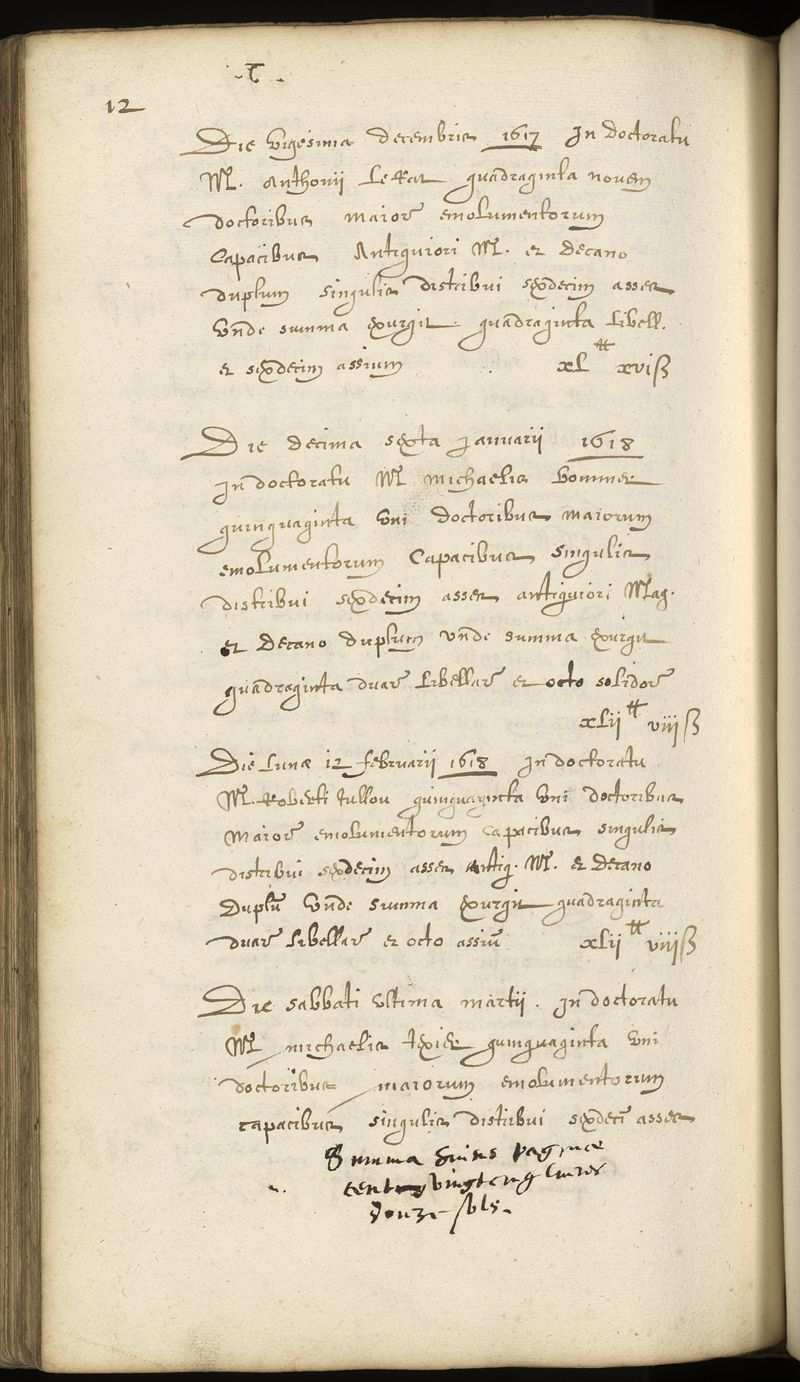 12
Die vigesima decembris 1617 In doctoratu
M. Anthonii Le Rat quadraginta novem
doctoribus maior emolumentorum
Capacibus Antiquiori M. et Decano
duplum singulis distribui sexdecim asses
Unde summa exurgit quadraginta libell.
et sexdecim assium xL ₶ xvi ß
Die decima sexta Januarii 1618
In doctoratu M michaelis
quinquaginta Uni doctoribus maiorum
emolumentorum Capacibus singulis
distribui sexdecim asses antiquiori Mag.
et Decano duplum unde summa exurgit
quadraginta duar libellar et octo solidor
xLii ₶ viii ß
Die Lunæ 12 februarii 1618 In doctoratu
M. Roberti tullou quinquaginta Uni doctoribus
maior emolumentorum capacibus singulis
distribui sexdecim asses antiq. M. et Decano
Duplū Unde summa exurgit quadraginta
duar libellar et octo assiū xLii ₶ viii ß
Die sabbati Ultima martii. In doctoratu
M michaelis texier quinquaginta uni
doctoribus maiorum emolumentorum
capacibus singulis distribui sexdecī asses
Summa huius paginæ
cent vingtcinq livres
douze sols.